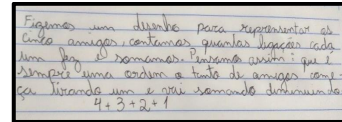 Fizemos um desenho para representar os
cinco amigos, contamos quantas ligações cada
um fez e somamos. Pensamos assim: que é
sempre uma ordem o tanto de amigos come-
ça tirando um e vai somando diminuindo
4+3+2+1